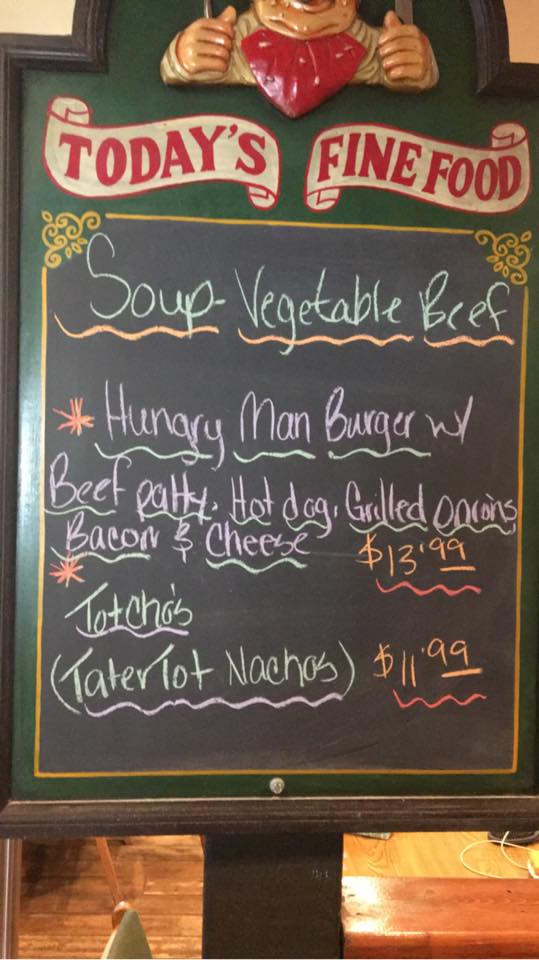 TODAY'S FINE FOOD
Soup- Vegetable Beef
* Hungry Man Burger w/
Beef patty, Hot dog, Grilled onions,
Bacon & Cheese $13.99
* Totcho's
(Tater Tot Nacho's) $11.99